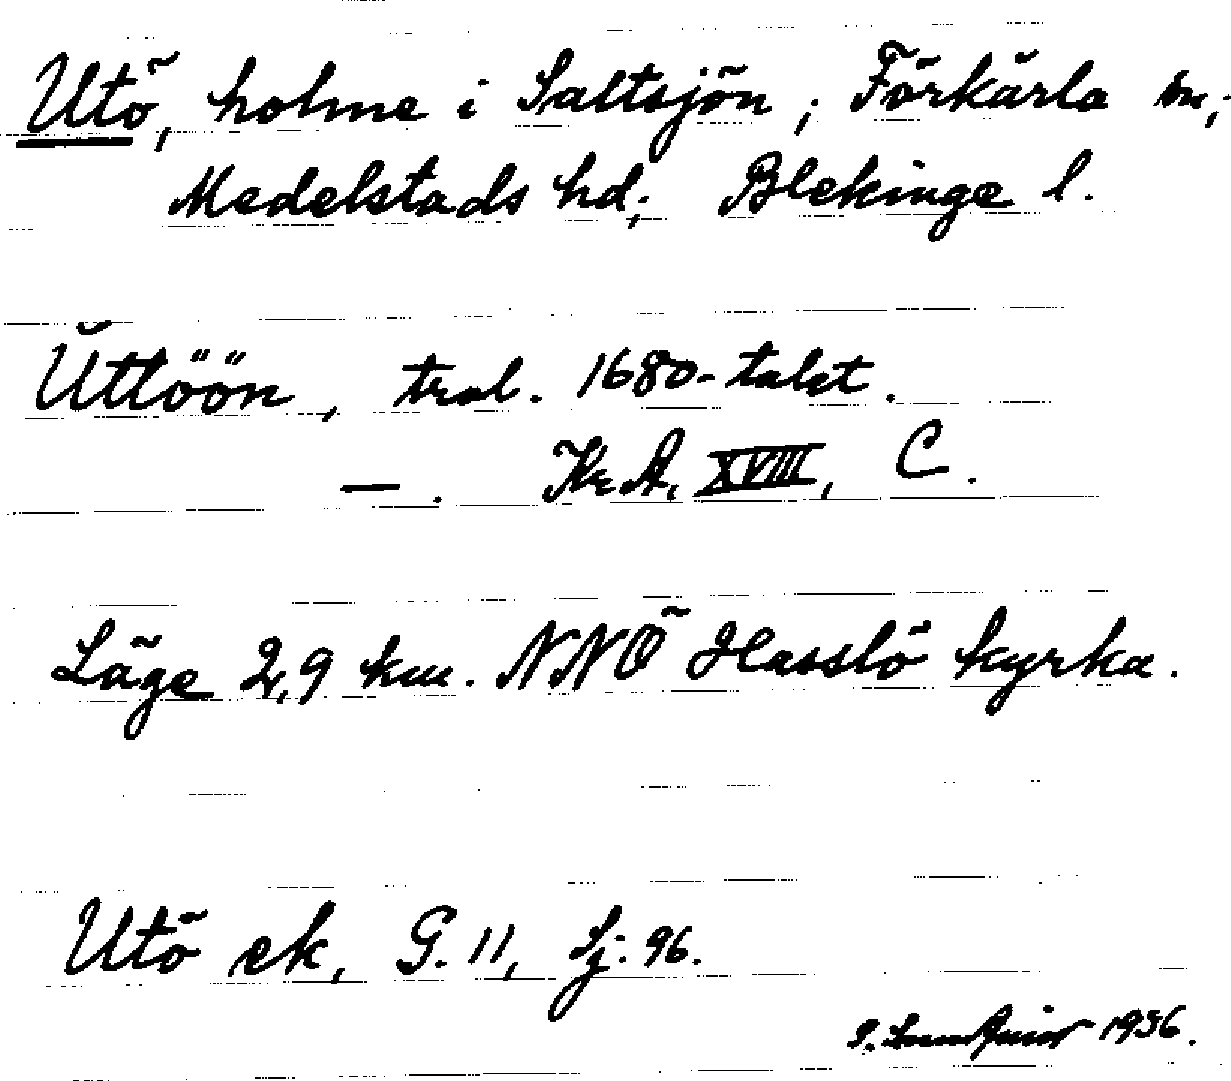 Utö, holme i Saltsjön; Förkärla sn;
Medelstads hd; Blekinge l.
Uttöön, trol. 1680-talet.
—. Kr.A. XVIII, C.
Läge 2,9 km. NNÖ Hasslö kyrka.
Utö ek, G. 11, Sj: 96.
1936.